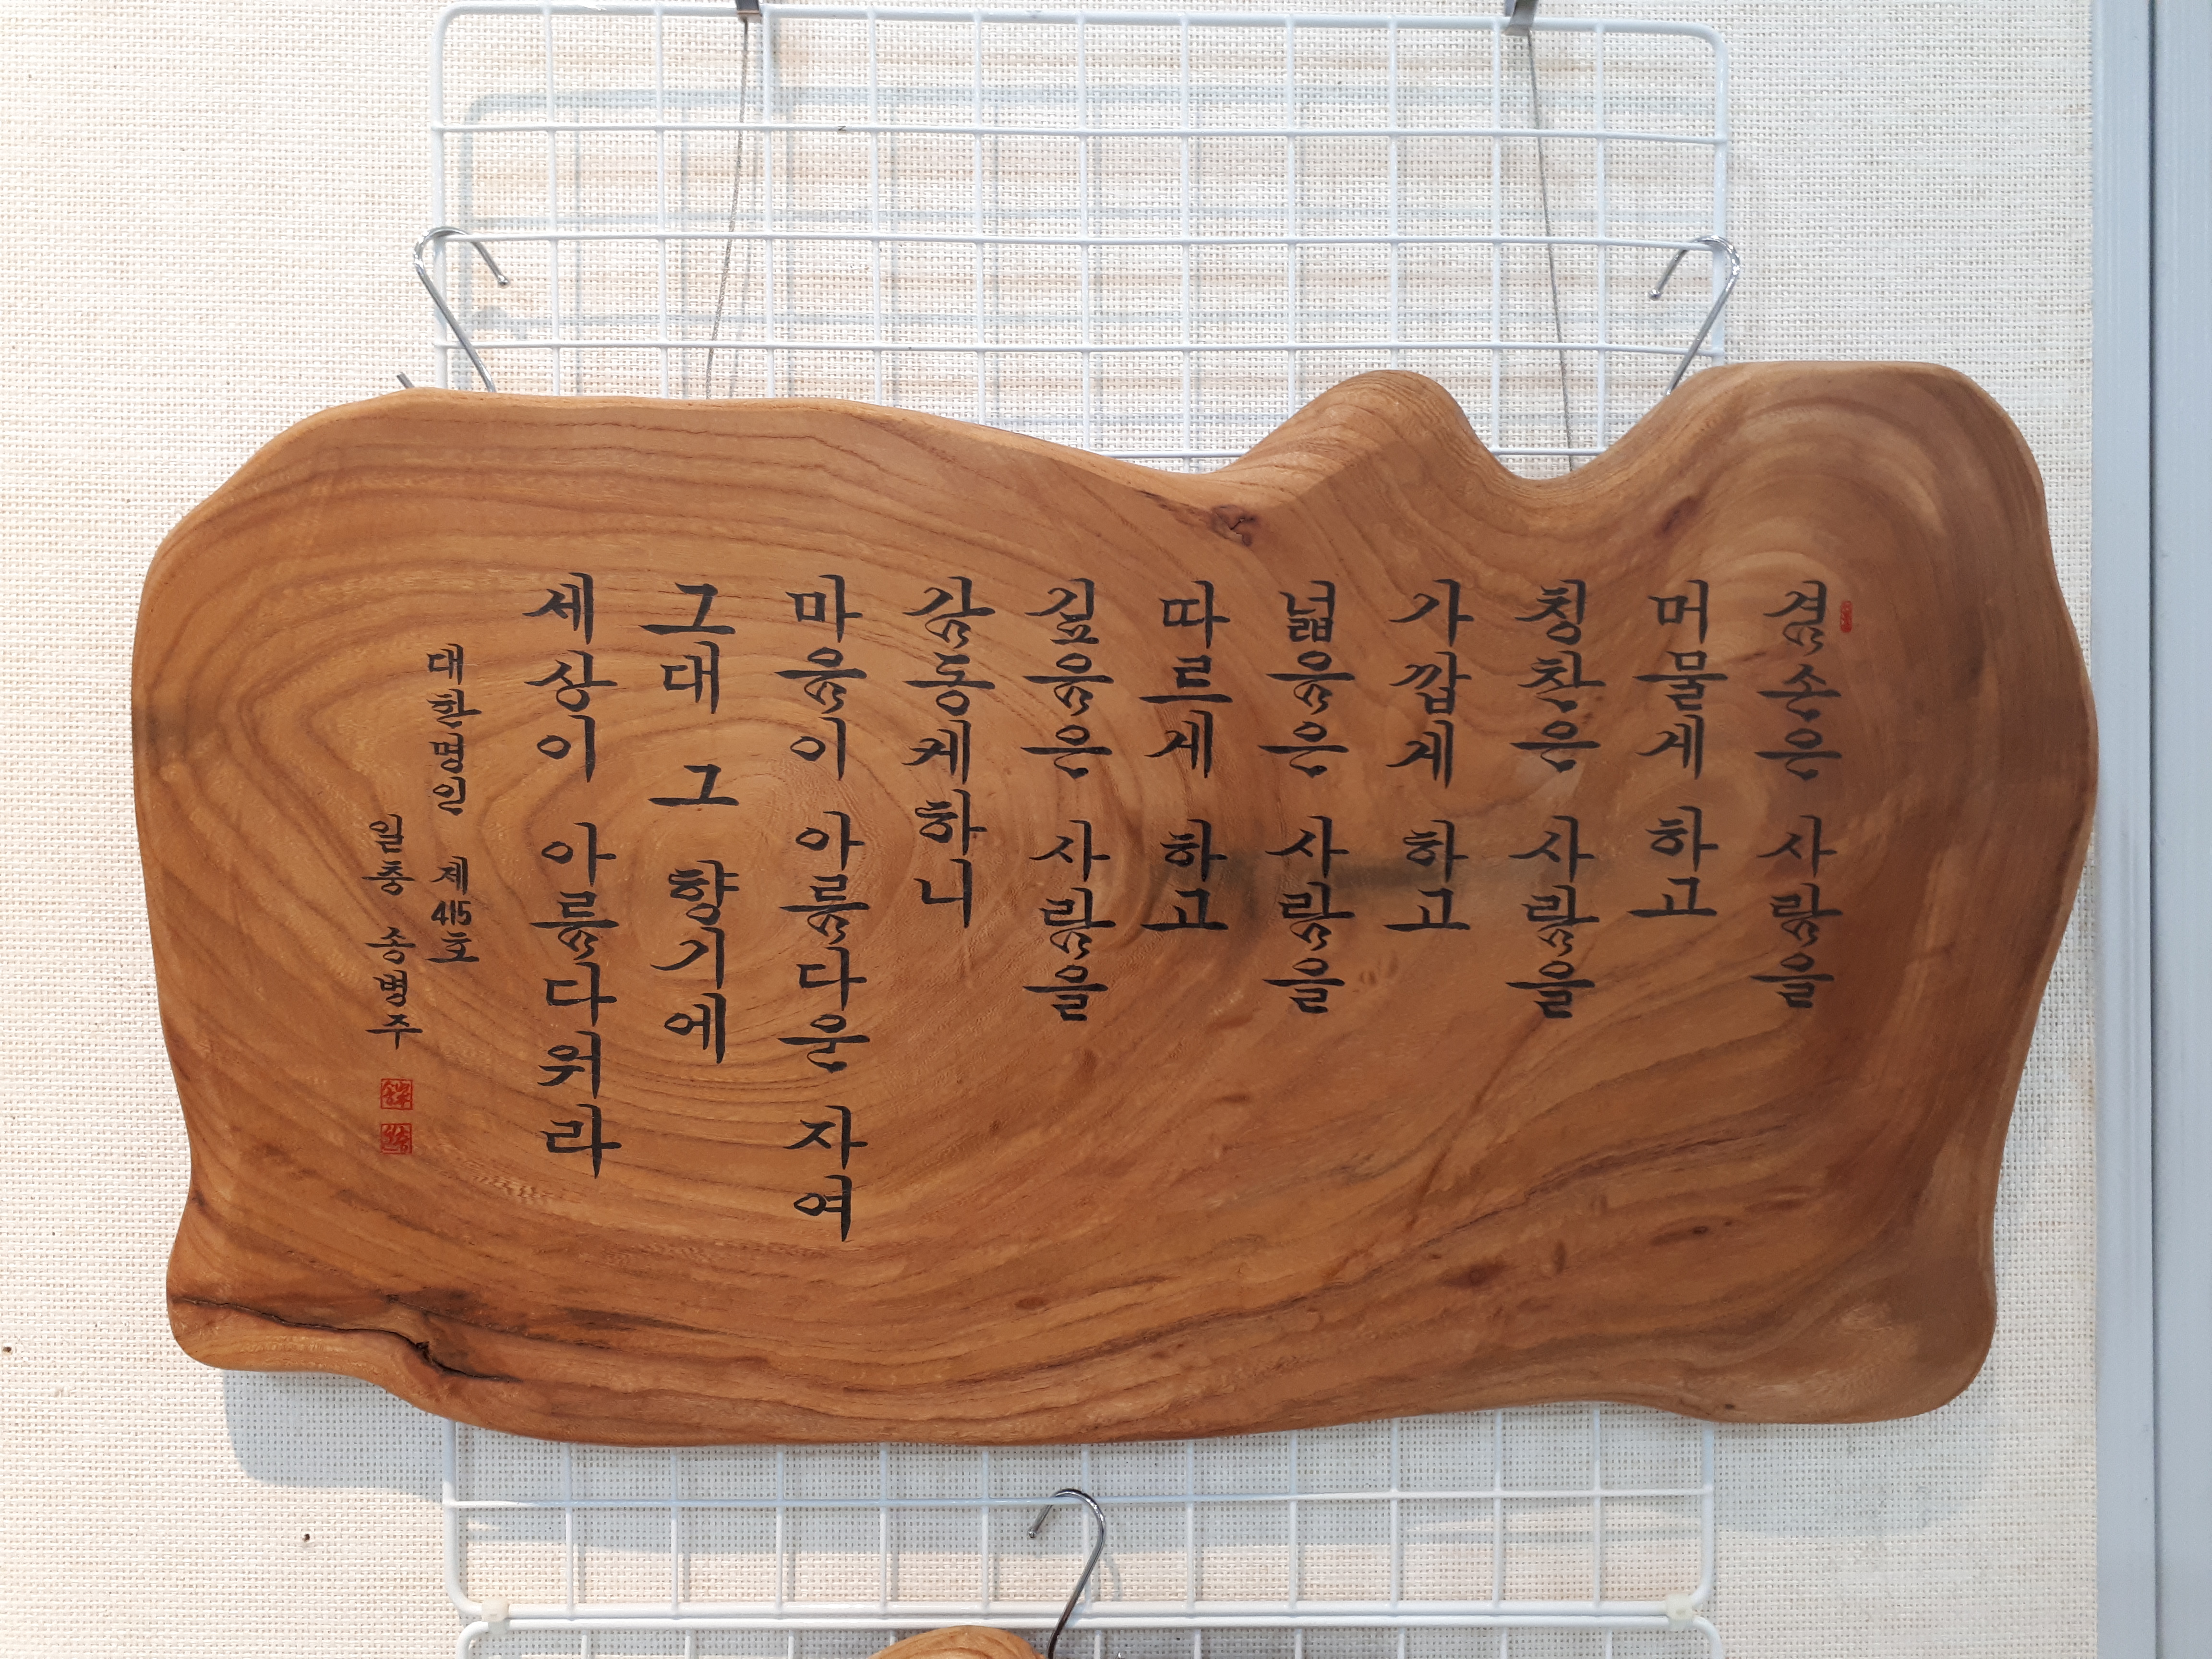 겸손은 사람을
머물게 하고
칭찬은 사람을
가깝게 하고
넓음은 사람을
따르게 하고
깊음은 사람을
감동케하니
마음이 아름다운 자여
그대 그 향기에
세상이 아름다워라
대한명인 제415호
일충 송병주